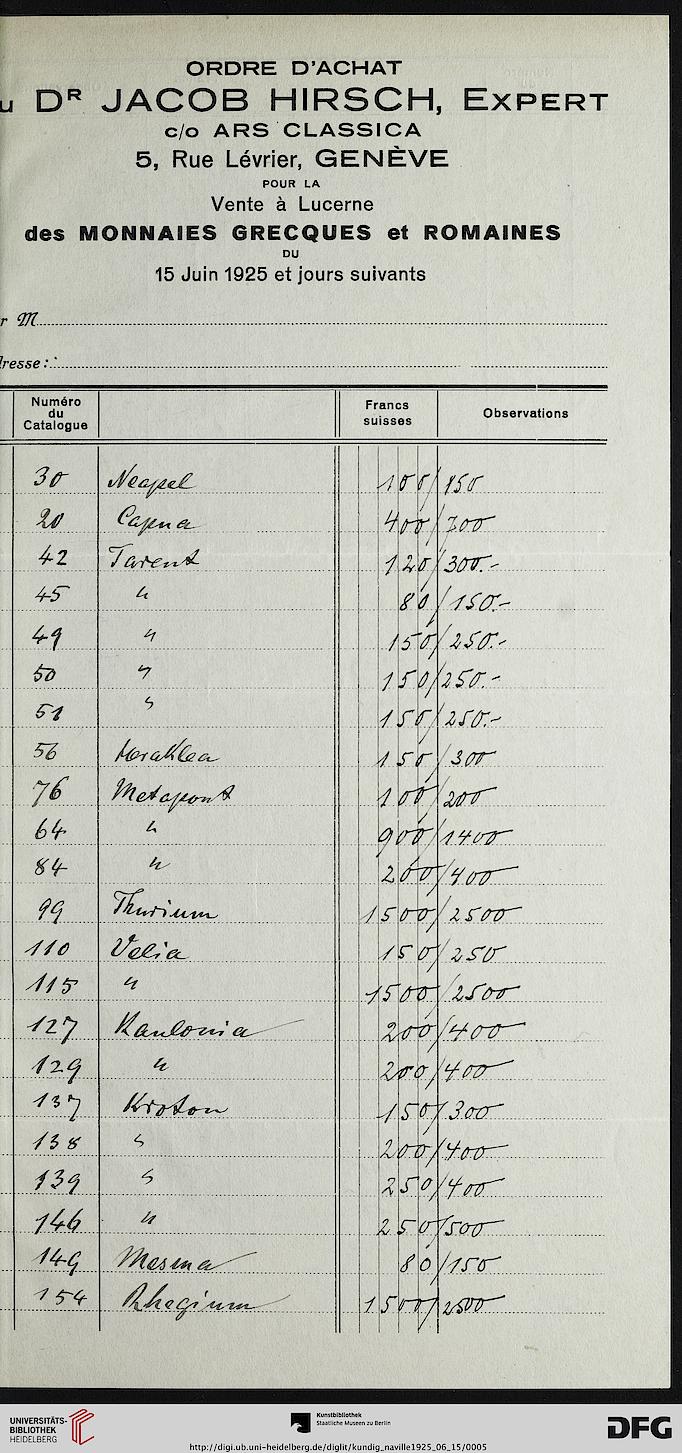 ORDRE D'ACHAT
u DR JACOB HIRSCH, EXPERT
c/o ARS CLASSICA
5, Rue Lévrier, GENÈVE
POUR LA
Vente à Lucerne
des MONNAIES GRECQUES et ROMAINES
DU
15 Juin 1925 et jours suivants
r M
dresse :
Numéro du Catalogue Francs suisses Observations
30 Neapel 100/150
20 Capua 400/700
42 Tarent 120/300.-
45 " 80/150.-
49 " 150/250.-
50 " 150/250.-
51 " 150/250.-
56 Heraklea 150/300
76 Metapont 100/200
64 " 900/1400
84 " 200/400
99 Thurium 1500/2500
110 Velia 150/250
115 " 1500/2500
127 Kaulonia 200/400
129 " 200/400
137 Kroton 150/300
138 " 200/400
139 " 250/400
146 " 250/500
149 Mesma 80/150
154 Rhegium 1500/2500
UNIVERSITÄTS-
BIBLIOTHEK
HEIDELBERG
Kunstbibliothek
Staatliche Museen zu Berlin
DFG
http://digi.ub.uni-heidelberg.de/diglit/kundig_naville1925_06_15/0005